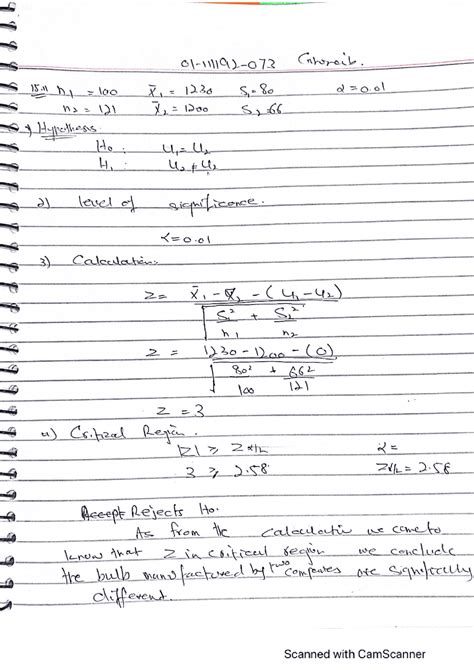 01-111192-073
15.11 n₁ = 100 x̄₁ = 1230 S₁=80 α=0.01
n₂ = 121 x̄₂ = 1200 S₂=66
1) Hypothesis
H₀ : u₁ = u₂
H₁ : u₁ ≠ u₂
2) level of significance.
α=0.01
3) Calculation:
z = x̄₁ - x̄₂ - (u₁ - u₂)
√ S₁² + S₂²
n₁ n₂
z = 1230 - 1200 - (0)
√ 80² + 66²
100 121
z = 3
4) Critical Region
|z| ≥ zα/2 α =
3 ≥ 2.58 zα/2 = 2.58
Accept Rejects Ho.
As from the calculation we come to
know that z in critical region we conclude
the bulb manufactured by two companies are significally
different.
Scanned with CamScanner